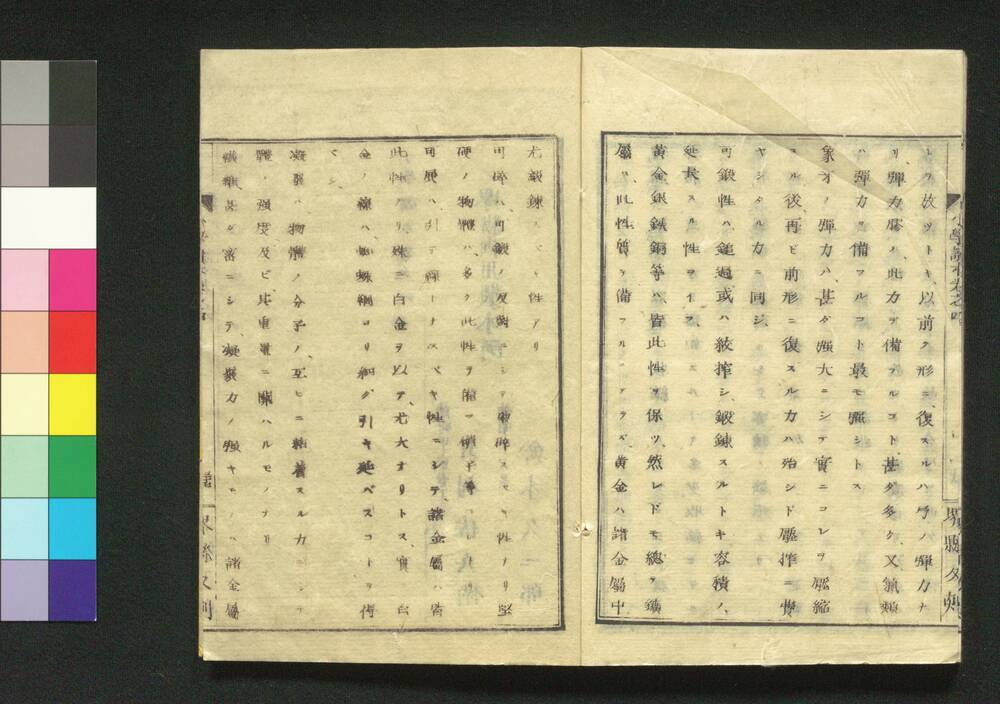 トク放ツトキ、以前ノ形ニ復スルハ弓ノ彈力ナ
リ、彈力膠ハ此力ヲ備フルコト甚ダ多ク又氣類
ハ彈力ヲ備フルコト最モ强シトス
象牙ノ彈力ハ甚ダ强大ニシテ實ニコレヲ壓縮
スル後再ビ前形ニ復スル力ハ殆ンド壓搾ニ費
ヤシタル力ニ同ジ
可鍛性ハ鎚過或ハ紋搾シ、鍛錬スルトキ容積ノ、
延長スル性ヲイス
黄金銀鉄銅等ハ皆此性ヲ保ツ然レドモ總テ鑛
屬ハ此性質ヲ備フルニアラズ、黄金ハ諸金屬中
尤鍛錬スベキ性アリ
可碎ハ可鍛ノ反對ニシテ破碎スベキ性ナリ堅
硬ノ物體ハ多ク此性ヲ備フ硝子等
可展ハ引テ線トナスベキ性ニシテ諸金屬ハ皆
此性アリ殊ニ白金ヲ以テ尤大ナリトス實ニ白
金ノ線ハ蜘蛛網ヨリ細ク引キ延ベスコトヲ得
ベシ
凝聚ハ物體ノ分子ノ互ヒニ粘着スル力ニシテ
體ノ强度及ビ其重量ニ關ハルモノナリ
纖維甚ダ密ニシテ凝聚力ノ强キモノハ諸金屬
小學讀本卷之四
堺縣父刻